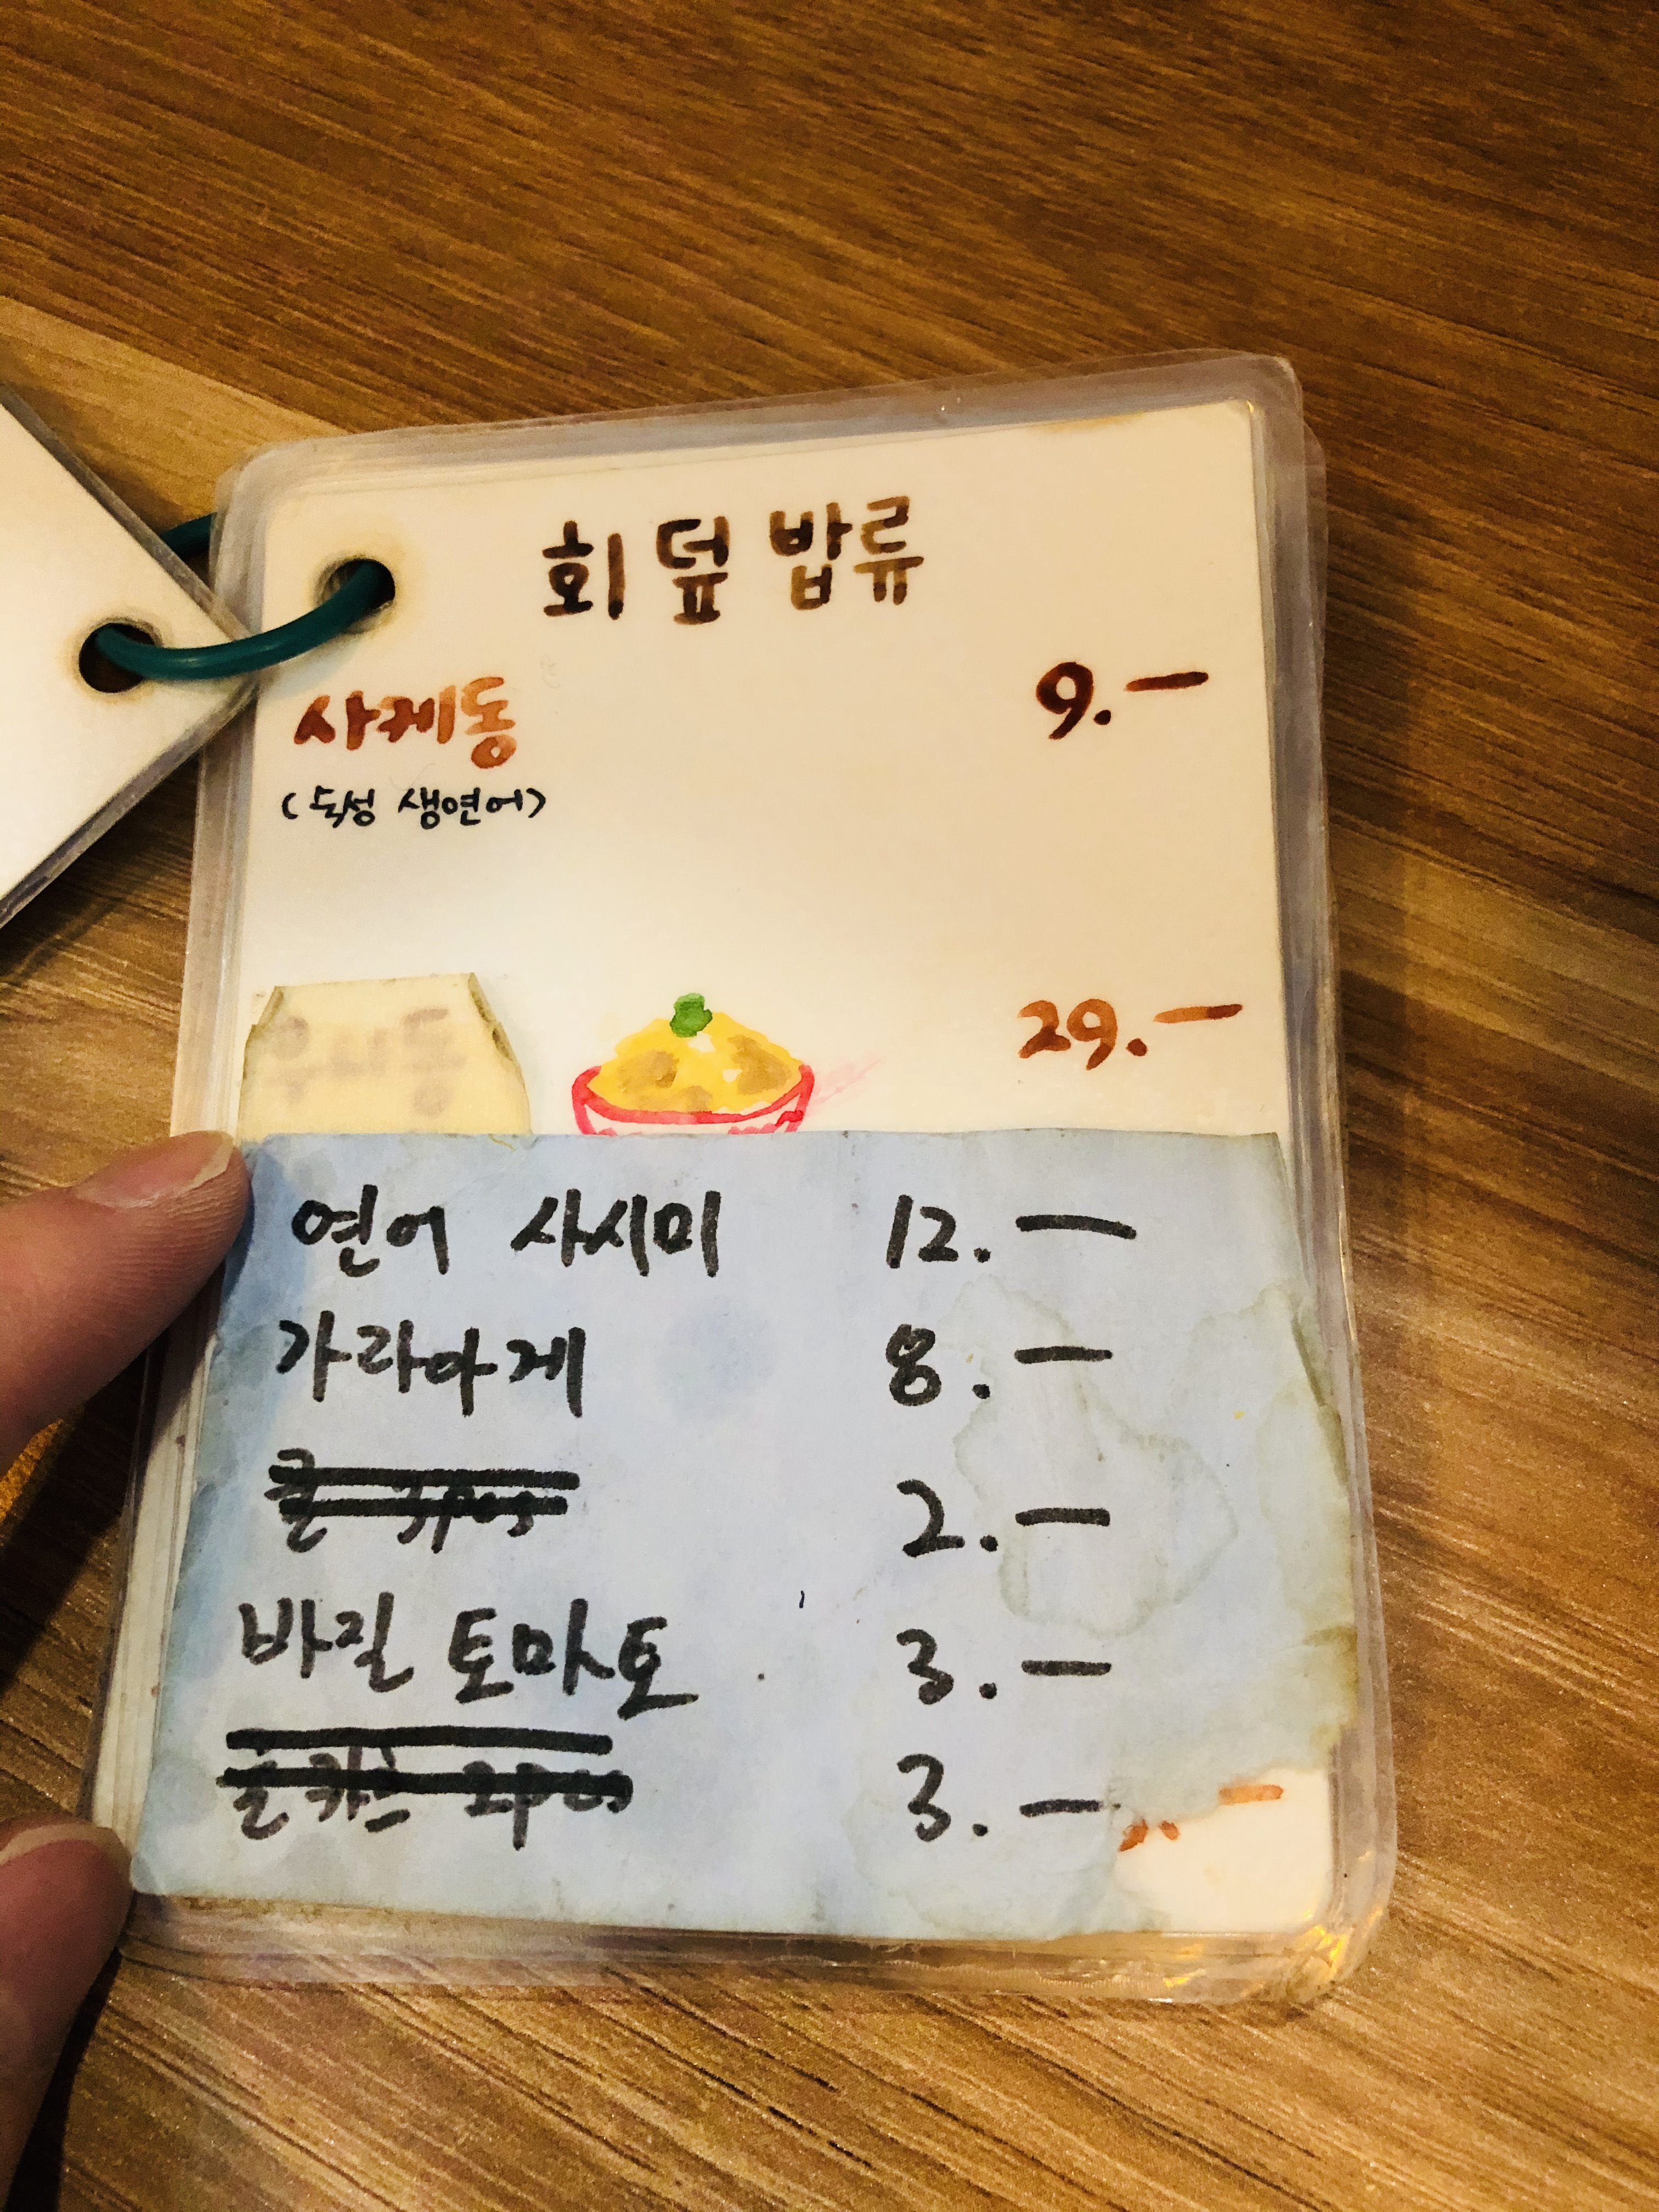 회덮밥류
사케동 9.-
(숙성 생연어)
우니동 29.-
연어 사시미 12.-
가라아게 8.-
2.-
바질 토마토 3.-
3.-